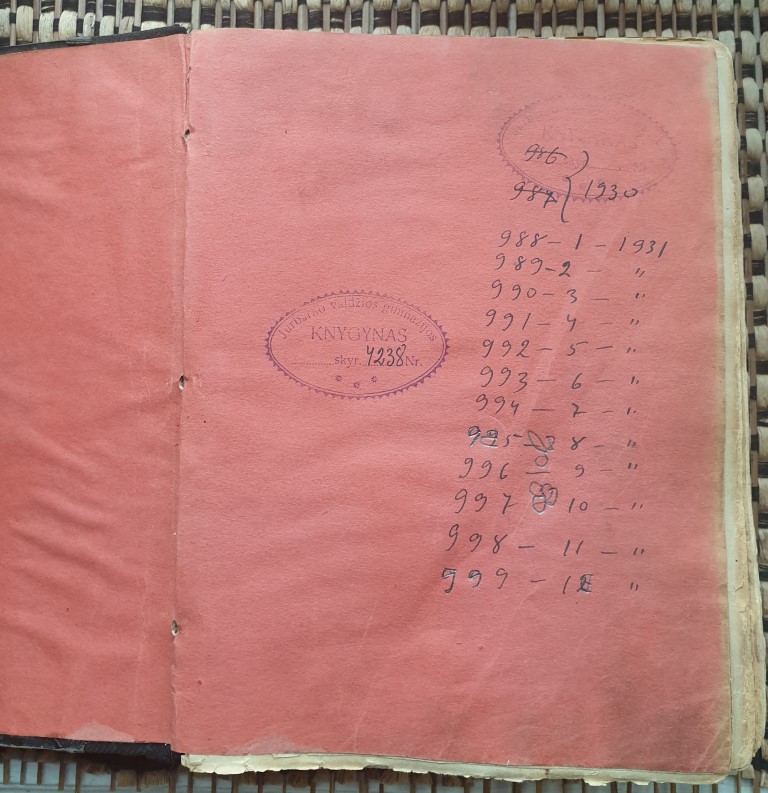 986
987 } 1930
988 - 1 - 1931
989 - 2 - "
990 - 3 - "
991 - 4 - "
992 - 5 - "
993 - 6 - "
994 - 7 - "
995 - 8 - "
996 - 9 - "
997 10 - "
998 - 11 - "
999 - 12 "
Jurbarko valdžios gimnazijos
KNYGYNAS
skyr. 4238 Nr.